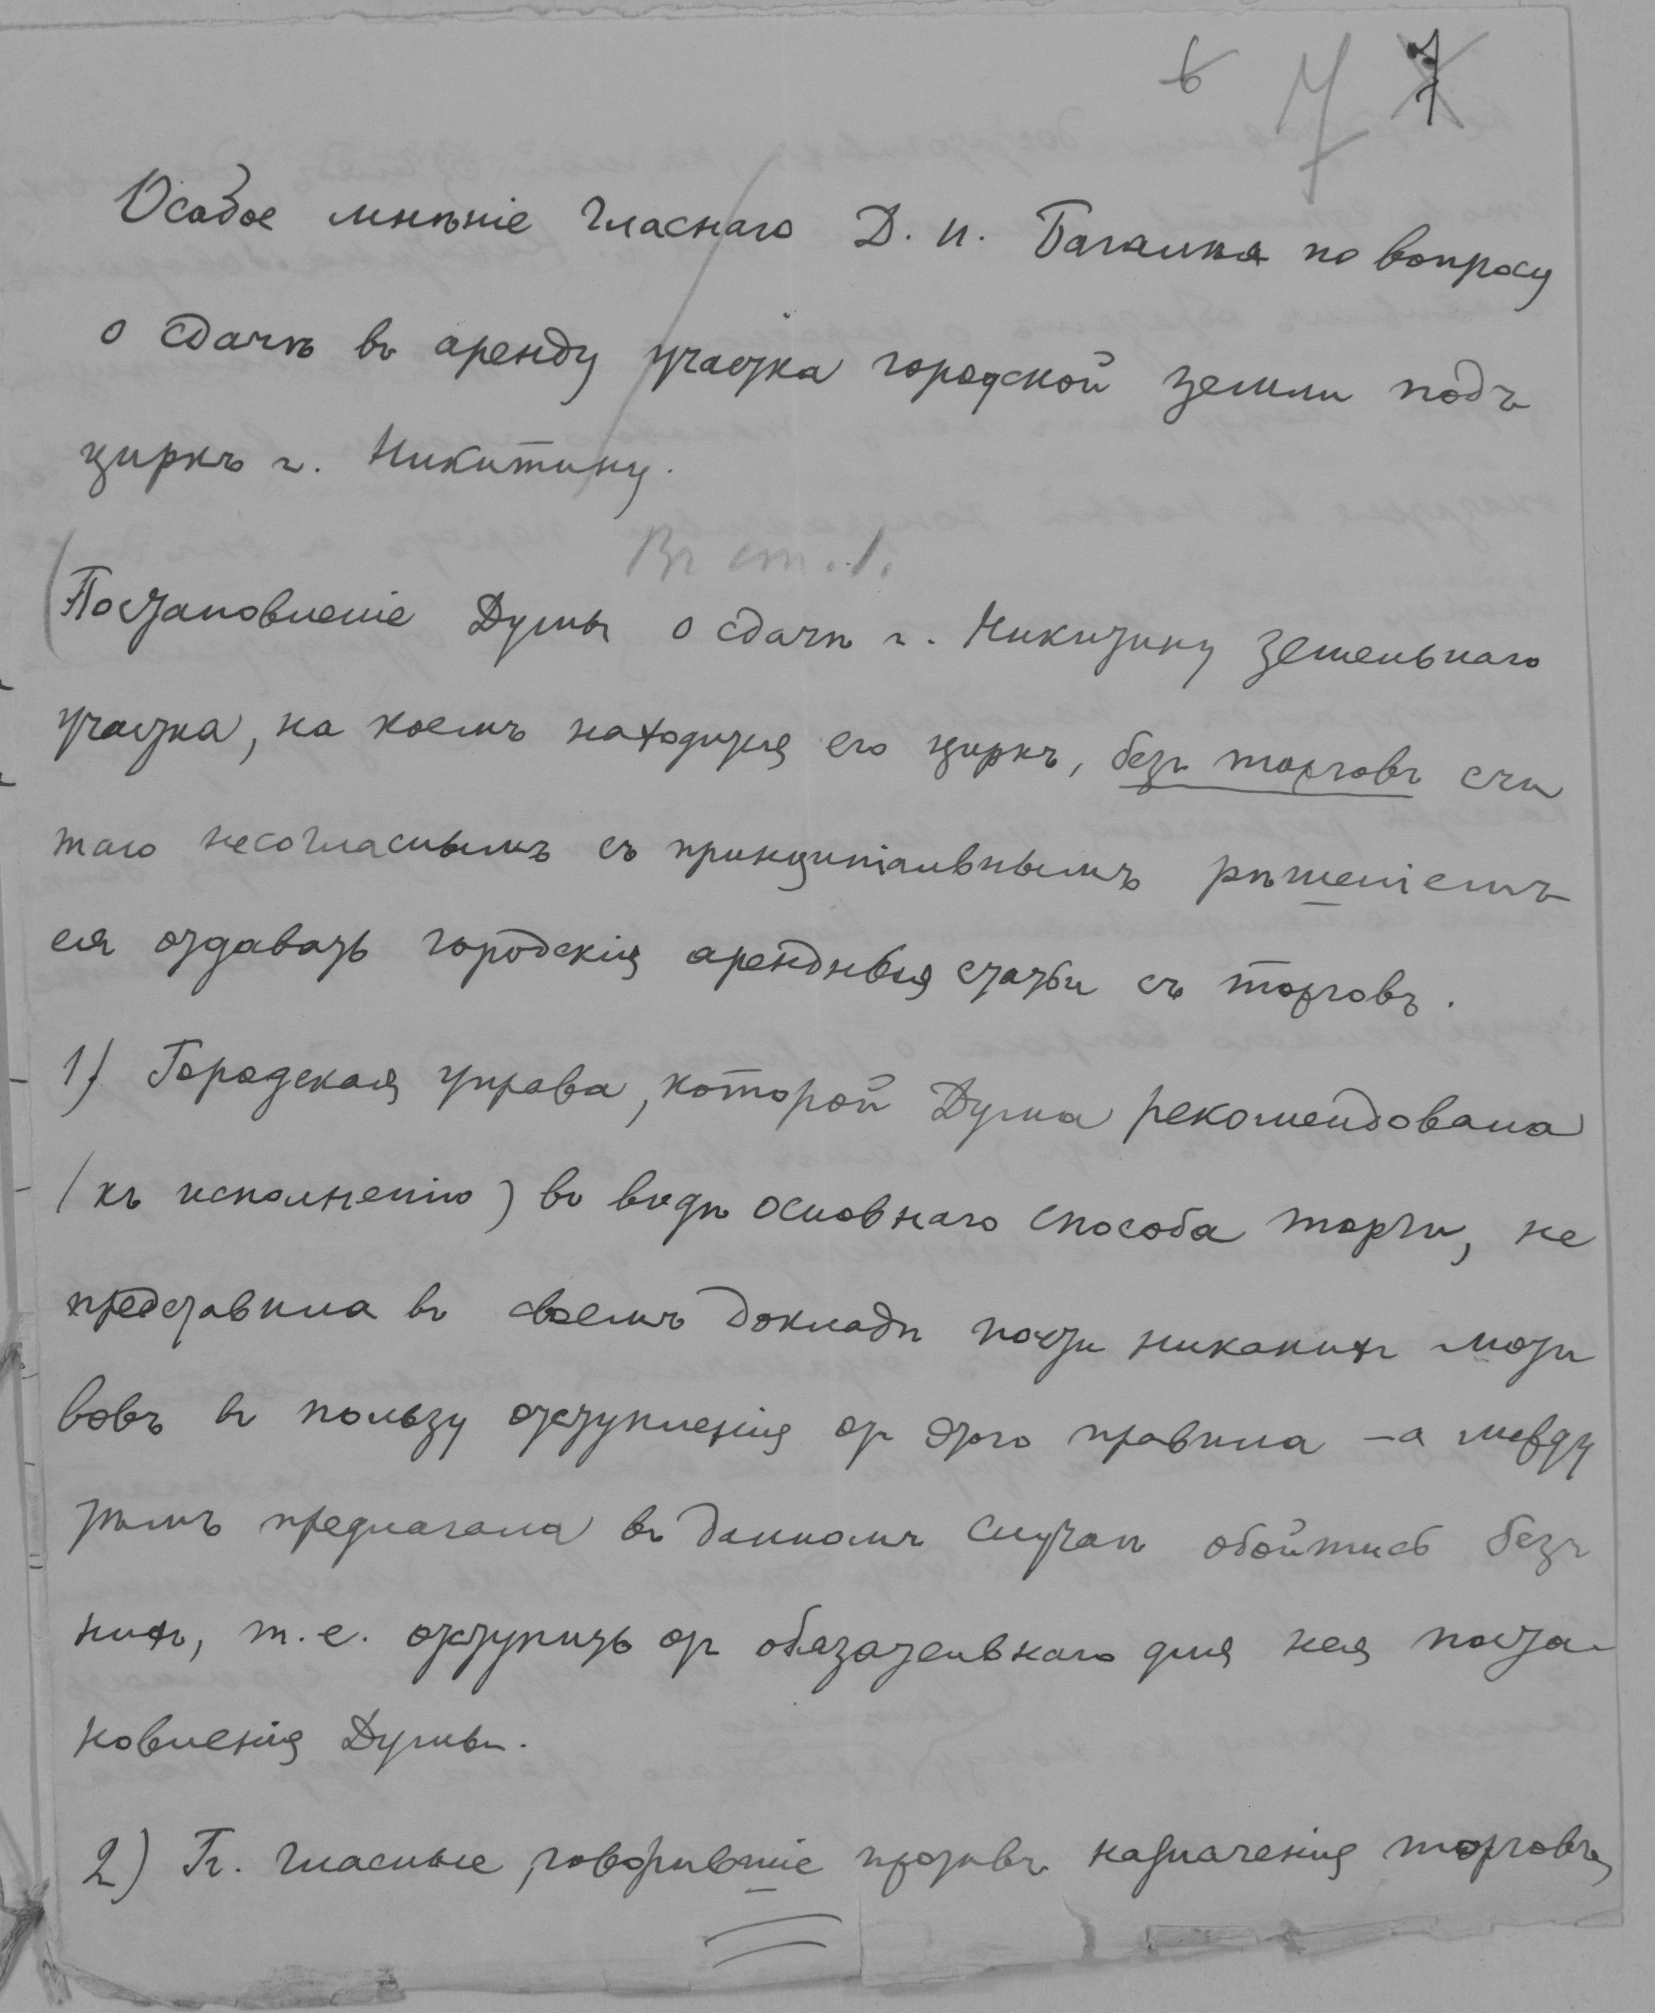 6 7 7
Особое мнѣніе гласнаго Д. И. Багалѣя по вопросу
о сдачѣ въ аренду участка городской земли подъ
циркъ г. Никитину.
Въ ст. 1.
(Постановленіе Думы о сдачѣ г. Никитину земельнаго
участка, на коемъ находится его циркъ, безъ торговъ счи
таю несогласнымъ съ принципіальнымъ рѣшеніемъ
ея отдавать городскія арендныя статьи съ торговъ.
1) Городская управа, которой Дума рекомендовала
(къ исполненію) въ видѣ основнаго способа торги, не
представила въ своемъ докладѣ почти никакихъ моти
вовъ въ пользу отступленія от этого правила – а между
тѣмъ предлагала въ данномъ случаѣ обойтись безъ
нихъ, т.е. отступить от обязательнаго для нея поста-
новленія Думы.
2) Гг. гласные, говорившіе противъ назначенія торговъ,